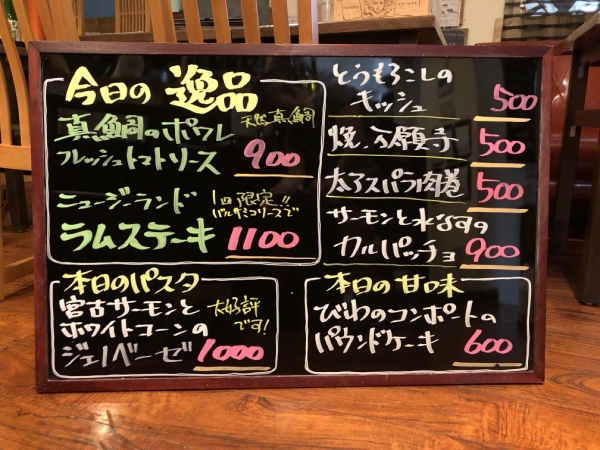 今日の 逸品
真鯛のポワレ
天然真鯛
フレッシュトマトソース 900
ニュージーランド
1回限定!!
バルサミコソースで
ラムステーキ 1100
とうもろこしの
キッシュ 500
焼 万願寺 500
太アスパラ肉巻 500
サーモンと水なすの
カルパッチョ 900
本日のパスタ
宮古サーモンと
ホワイトコーンの
大好評
です!
ジェノベーゼ 1000
本日の甘味
びわのコンポートの
パウンドケーキ 600